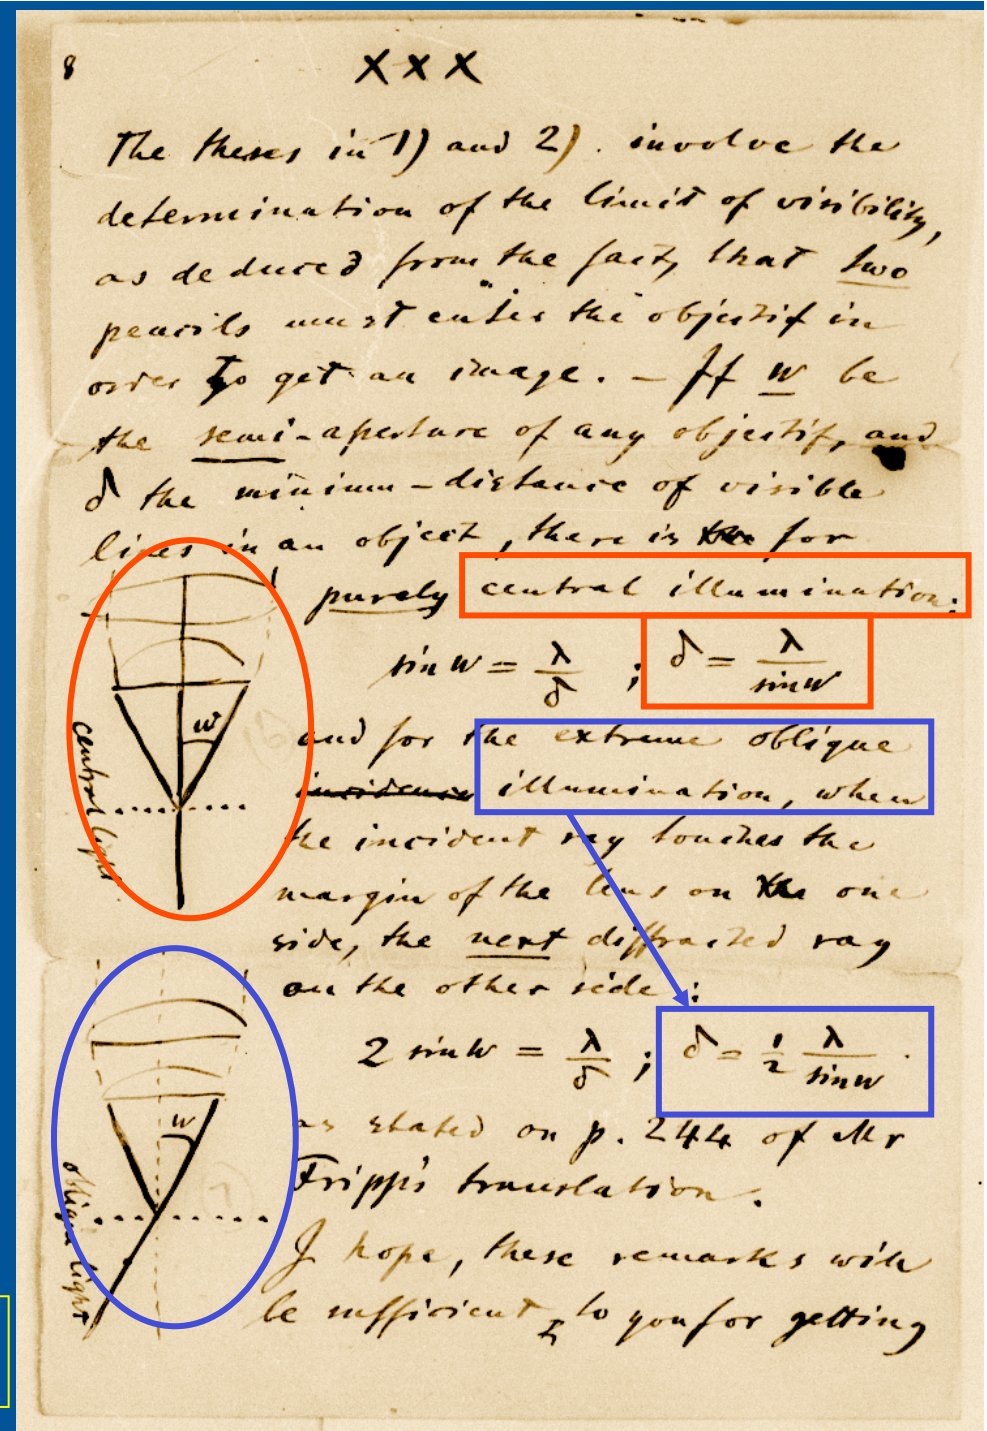 8
XXX
The theses in 1) and 2). involve the
determination of the limit of visibility,
as deduced from the fact, that two
pencils must enter the objectif in
order to get an image. – If w be
the semi-aperture of any objectif, and
δ the minimum-distance of visible
lines in an object, there is for
purely central illumination:
sin w = λ/δ ; δ = λ/sin w
w
central light
and for the extreme oblique
incidence illumination, when
the incident ray touches the
margin of the lens on the one
side, the next diffracted ray
on the other side:
2 sin w = λ/δ ; δ = 1/2 λ/sin w
w
oblique light
as stated on p. 244 of Mr
Fripp's translation.
I hope, these remarks will
be sufficient to you for getting